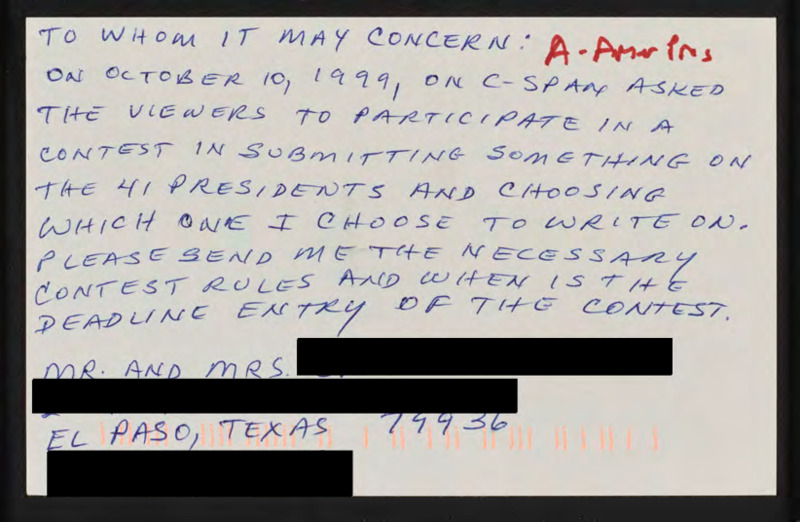 TO WHOM IT MAY CONCERN: A-Amer Pres
ON OCTOBER 10, 1999, ON C-SPAN ASKED
THE VIEWERS TO PARTICIPATE IN A
CONTEST IN SUBMITTING SOMETHING ON
THE 41 PRESIDENTS AND CHOOSING
WHICH ONE I CHOOSE TO WRITE ON.
PLEASE SEND ME THE NECESSARY
CONTEST RULES AND WHEN IS THE
DEADLINE ENTRY OF THE CONTEST.
MR. AND MRS.
EL PASO, TEXAS 79936